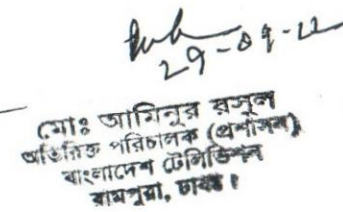 29-09-22
মোঃ আমিনুর রসুল
অতিরিক্ত পরিচালক (প্রশাসন)
বাংলাদেশ টেলিভিশন
রামপুরা, ঢাকা।